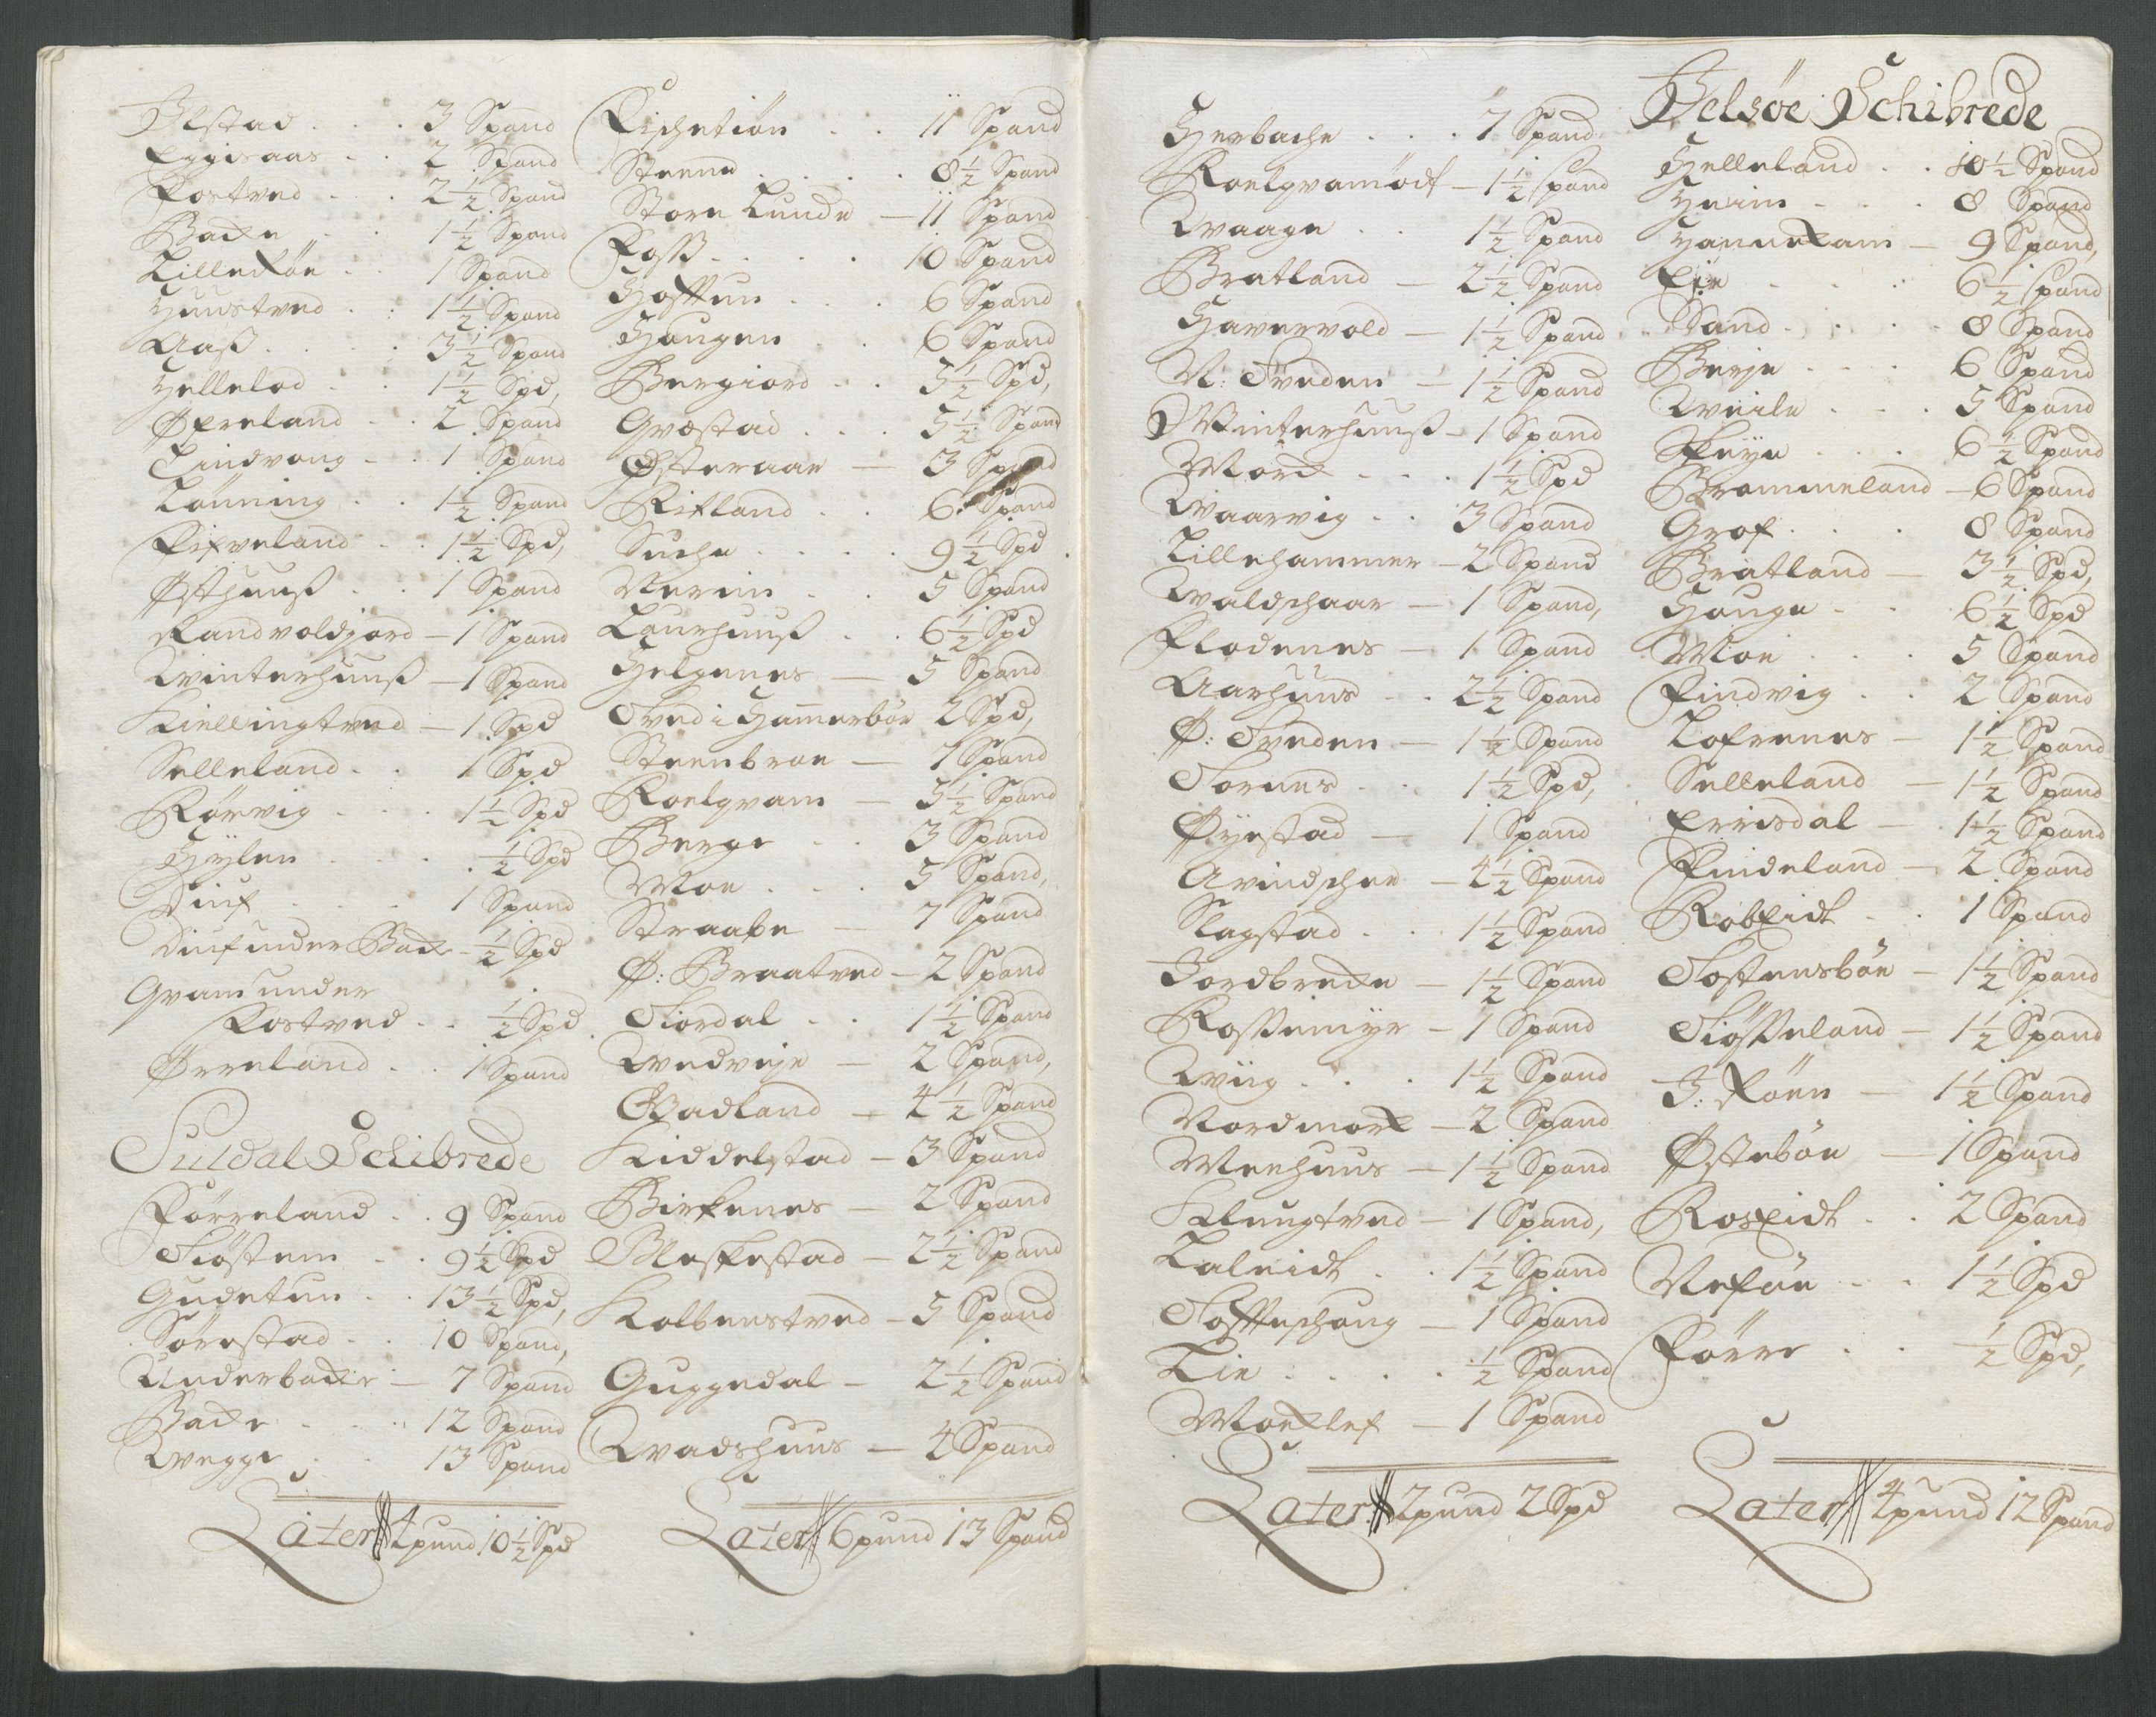 Ølstad . . . 3 Spand
Eggisaas . . 2 Spand
Fostved . . . 2½ Spand
Backe . . 1½ Spand
Lilleköe . . 1 Spand
Huustved . . 1½ Spand
Aaß . . . . 3½ Spand
Hellelod . . 1½ Spd,
Øfreland . . 2 Spand
Lindvang . . 1 Spand
Lönning . . 1½ Spand
Fifveland . . 1½ Spd,
Østhuuß . . 1 Spand
Randvoldgord — 1 Spand
Winterhuuß — 1 Spand
Kiellingtved — 1 Spd
Selleland . . 1 Spd
Rörvig . . . 1½ Spd
Hylen . . . . ½ Spd
Diuf . . . 1 Spand
Diuf under Backe — ½ Spd
Gvam under
Fostved . . ½ Spd
Ørreland . . 1 Spand
Suldal Schibrede
Förreland . . 9 Spand
Siöstem . . 9½ Spd
Gudetun . . 13½ Spd,
Sörestad . . 10 Spand,
Underbacke — 7 Spand
Backe . . . 12 Spand
Wegge . . 13 Spand
Later 4 pund 10½ Spd
Fischetiön . . 11 Spand
Steene . . . . 8½ Spand
Store Lunde — 11 Spand
Foss . . . . 10 Spand
Hoftun . . . 6 Spand
Haugen . . 6 Spand
Bergiord . . 5½ Spd,
Gvæstad . . . 5½ Spand
Østeraae — 3 Spand
Ritland . . 6 Spand
Suche . . . . 9½ Spd
Nerim . . 5 Spand
Laurhuuß . . 6½ Spd
Helgenes — 5 Spand
Tved i Hamerböe 2 Spd,
Steenbroe — 7 Spand
Roelqvam — 5½ Spand
Berge . . 3 Spand
Moe . . . 5 Spand,
Straabe — 7 Spand
Ø: Braatved — 2 Spand
Fiordal . . 1½ Spand
Wedveje — 2 Spand,
Gvadland — 4½ Spand
Kiddelstad — 3 Spand
Birkenes — 2 Spand
Bleskestad — 2½ Spand
Kolbenstved — 5 Spand
Guggedal — 2½ Spand
Wadshuus — 4 Spand
Later 6 pund 13 Spand
Herbache . . . 7 Spand
Roelqvamödt — 1½ Spand
Waage . . 1½ Spand
Bratland — 2½ Spand
Havervold — 1½ Spand
N: Tveden — 1½ Spand
Winterhuuß — 1 Spand
Mork . . . 1½ Spd
Waarvig . . 3 Spand
Lillehammer — 2 Spand
Waldschaar — 1 Spand,
Flodenes — 1 Spand
Aarhuus . . 2½ Spand
Ø: Tveden — 1½ Spand
Tornes . . 1½ Spd,
Øÿestad — 1 Spand
Qvindschee — 4½ Spand
Slagstad . . 1½ Spand
Jordbrecke — 1½ Spand
Rossemyr — 1 Spand
Wiig . . . 1½ Spand
Nordmork — 2 Spand
Meehuus — 1½ Spand
Klungtved — 1 Spand,
Laleidt . . 1½ Spand
Tofteschaug — 1 Spand
Lie . . . . ½ Spand
Moeklef — 1 Spand
Later 2 pund 2 Spd
Jelsøe Schibrede
Helleland . . 10½ Spand
Heim . . . 8 Spand
Hannekam — 9 Spand,
Eje . . . 6½ Spand
Sand . . . . 8 Spand
Berje . . . . 6 Spand
Weile . . . 5 Spand
Skeÿe . . . 6½ Spand
Brommeland — 6 Spand
Grof . . . 8 Spand
Bratland — 3½ Spd,
Hauge . . . 6½ Spd
Moe . . . 5 Spand
Findvig . . 2 Spand
Lofrenes — 1½ Spand
Selleland — 1½ Spand
Errisdal — 1½ Spand
Findeland — 2 Spand
Robseidt . . 1 Spand
Tostensböe — 1½ Spand
Siösseland — 1½ Spand
J: Röen — 1½ Spand
Østeböe — 1 Spand
Roseidt . . 2 Spand
Neföe . . 1½ Spd
Förre . . ½ Spd,
Later 4 pund 12 Spand